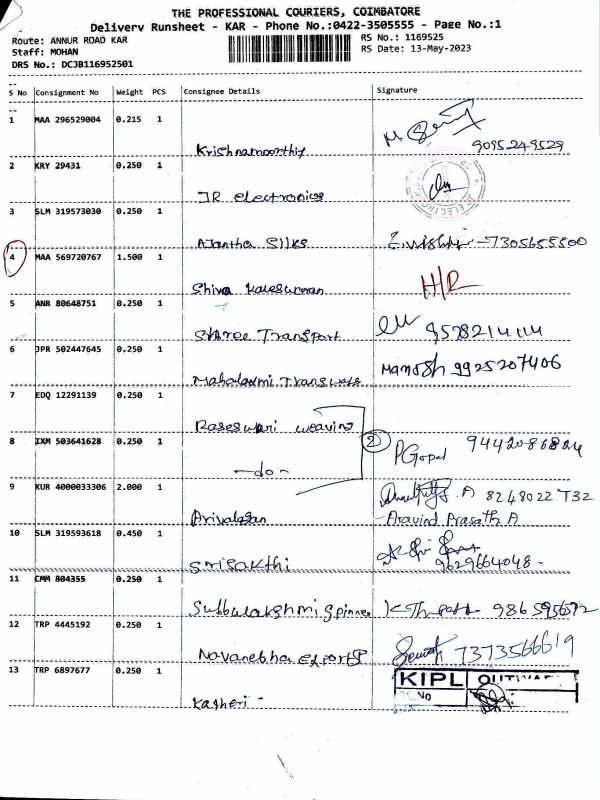 THE PROFESSIONAL COURIERS, COIMBATORE
Delivery Runsheet - KAR - Phone No.:0422-3505555 - Page No.:1
Route: ANNUR ROAD KAR
RS No.: 1169525
Staff: MOHAN
RS Date: 13-May-2023
DRS No.: DCJB116952501
S No Consignment No Weight PCS Consignee Details Signature
1 MAA 296529004 0.215 1
Krishnamoorthy 9095249529
2 KRY 29431 0.250 1
JR electronics
3 SLM 319573030 0.250 1
Ajantha Silks 7305655500
4 MAA 569720767 1.500 1
Shiva H/R
5 ANR 80648751 0.250 1
Sthree Transport 9578214114
6 JPR 502447645 0.250 1
Mahalaxmi Manosh 9925207406
7 EDQ 12291139 0.250 1
Raseswari weaving
8 IXM 503641628 0.250 1
-do- 2 PGopal
9 KUR 4000033306 2.000 1
Arivalagan Aravind Prasath A
10 SLM 319593618 0.450 1
Srisakthi 9629664048
11 CMM 804355 0.250 1
Subbulakshmi Spinner
12 TRP 4445192 0.250 1
Navanebha Exports 7373566619
13 TRP 6897677 0.250 1
KIPL
No
Katheri